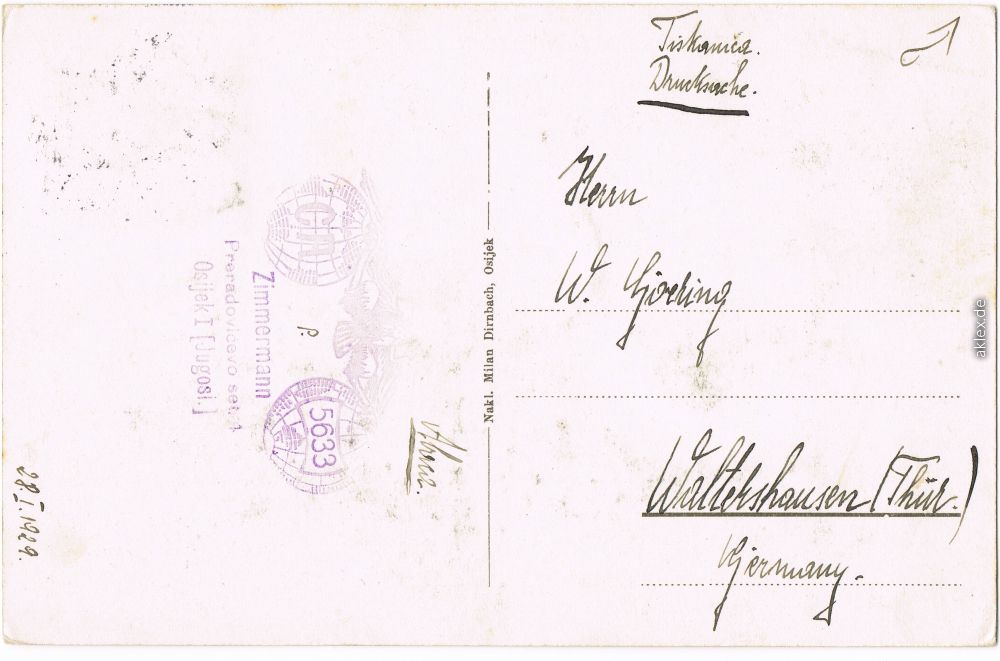 Tiskanica.
Drucksache.
Herrn
W. Göring
Waltershausen (Thür.)
Germany.
Nakl. Milan Dirnbach, Osijek
5633
P.
Zimmermann
Preradovicevo set. 1
Osijek I [Jugosl.]
28.I.1929.
aklex.de